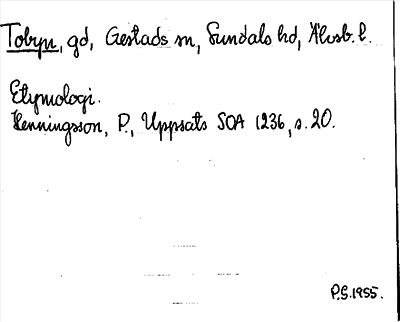 Tobyn, gd, Gestads sn, Sundals hd, Älvsb. l.
Etymologi.
Henningsson, P., Uppsats SOA 1236, s. 20.
P.S. 1955.